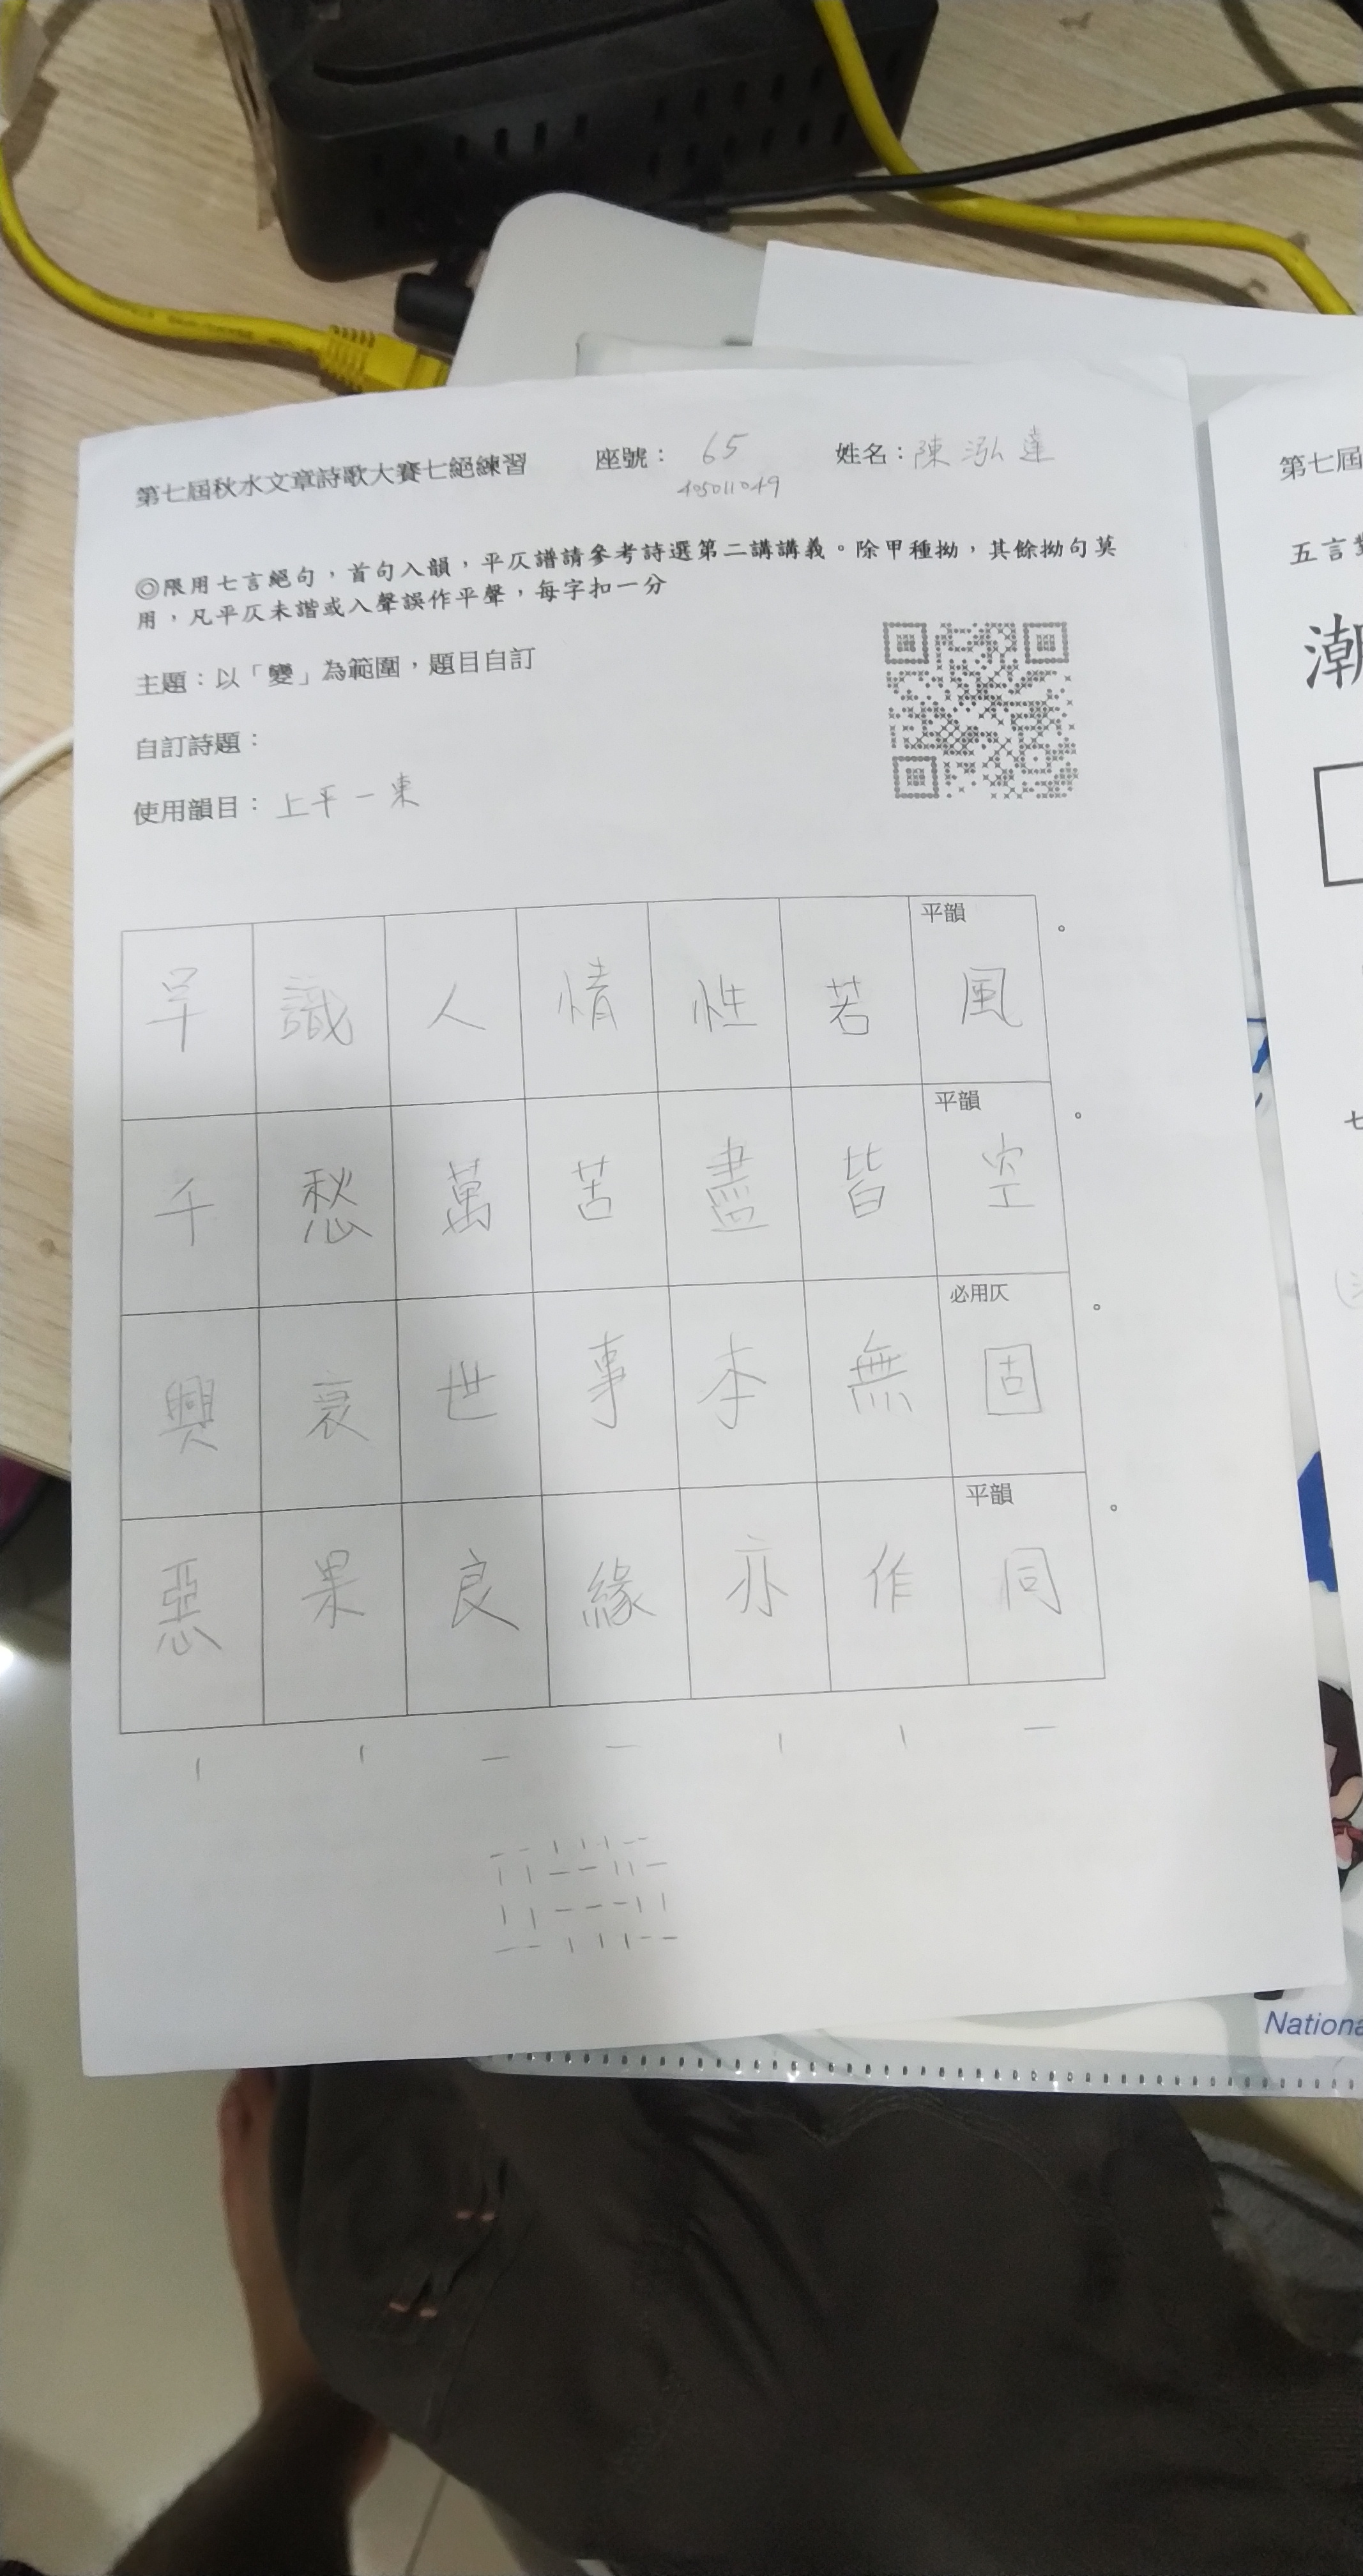 第七屆秋水文章詩歌大賽七絕練習 座號：65 姓名：陳泓達
405011049
◎限用七言絕句，首句入韻，平仄譜請參考詩選第二講講義。除甲種拗，其餘拗句莫
用，凡平仄未諧或入聲誤作平聲，每字扣一分
主題：以「變」為範圍，題目自訂
自訂詩題：
使用韻目：上平一東
平韻
早識人情性若風。
平韻
千愁萬苦盡皆空。
必用仄
興衰世事本無固。
平韻
惡果良緣亦作同。
第七屆
五言
潮
七
Nationa